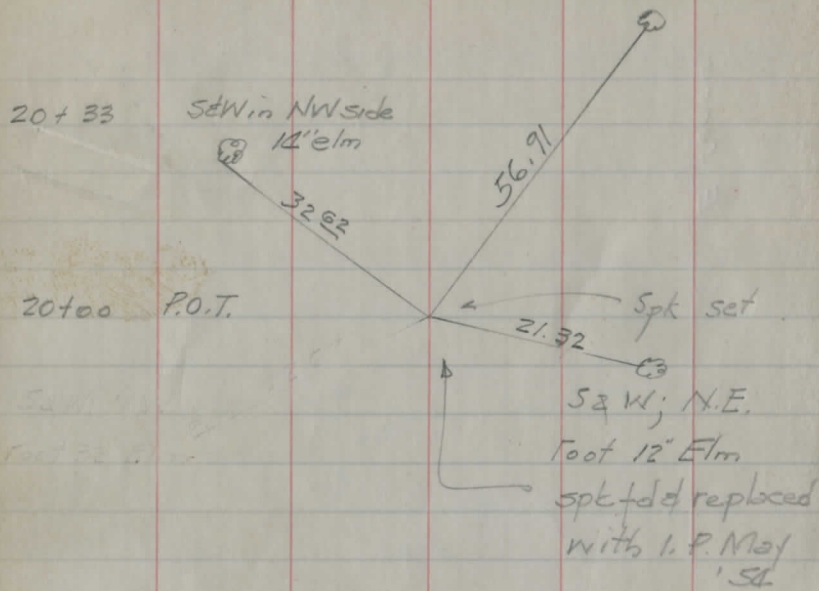 20+33 S&W in NW side
14" elm
56.91
32 62
20+00 P.O.T.
Spk set
21.32
S & W; N.E.
root 12" Elm
spk fd & replaced
with I.P. May
'54